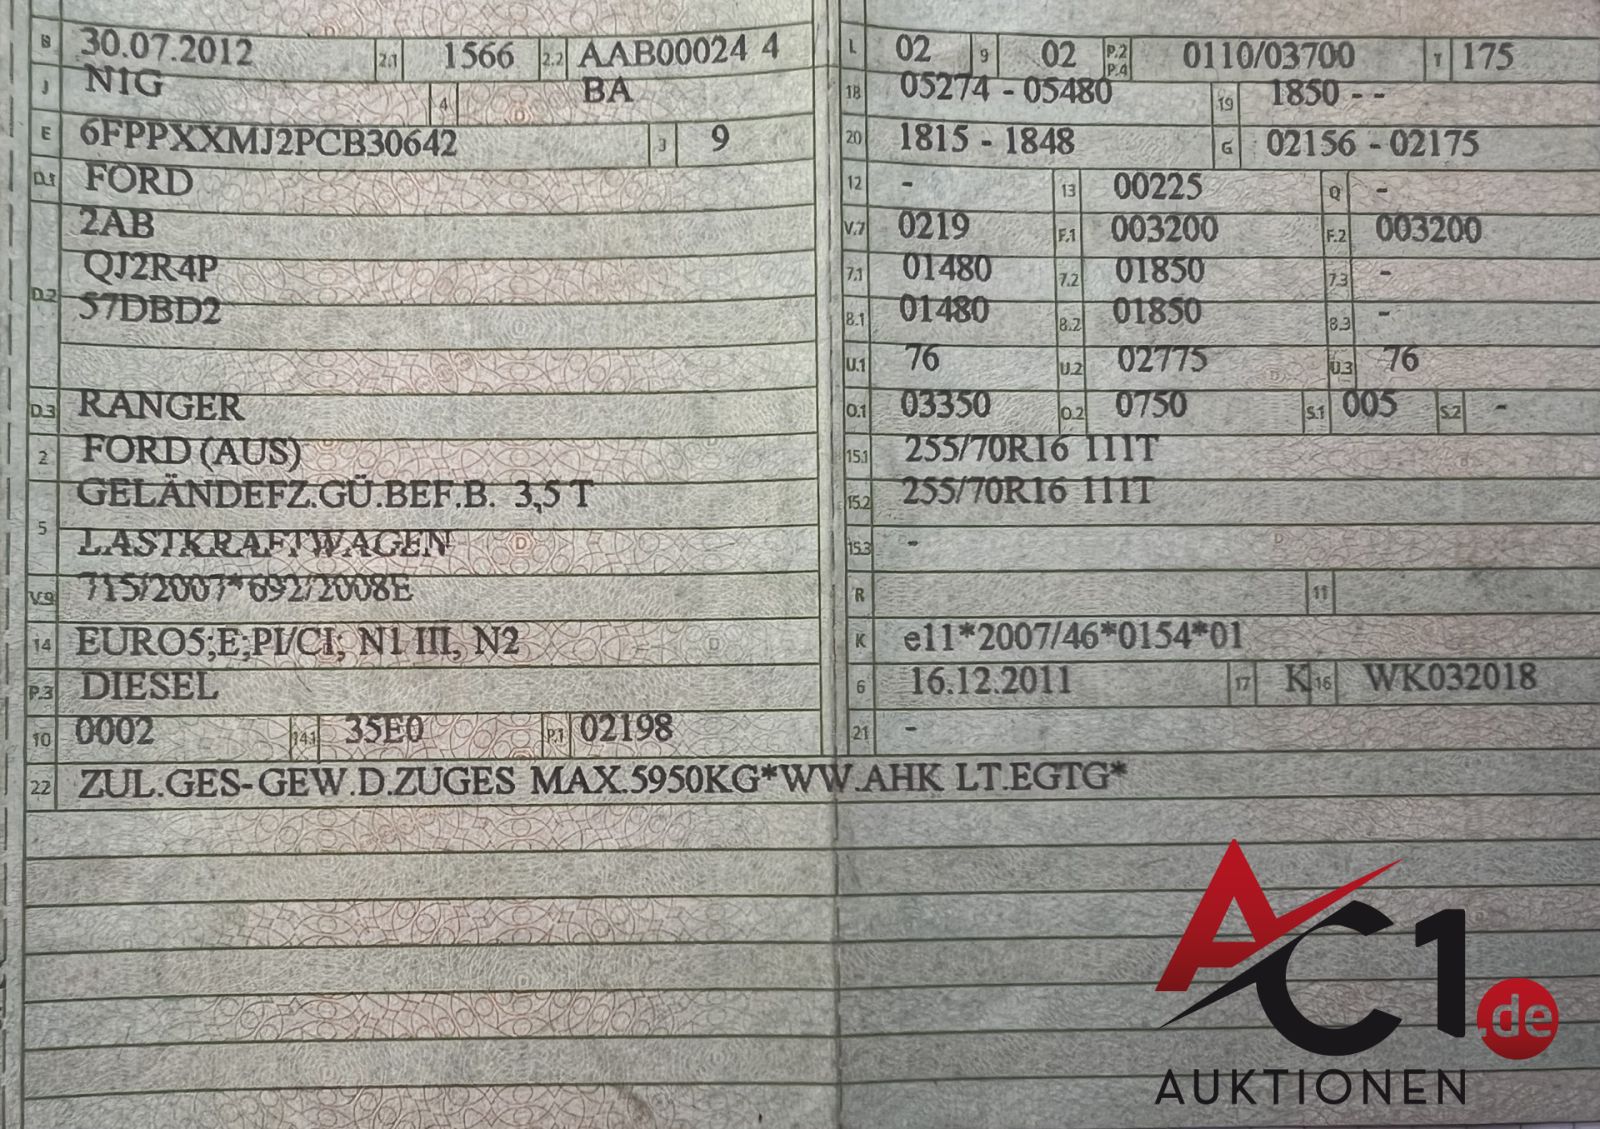 B 30.07.2012 2.1 1566 2.2 AAB00024 4
J N1G 4 BA
E 6FPPXXMJ2PCB30642 3 9
D.1 FORD
2AB
QJ2R4P
D.2 57DBD2
D.3 RANGER
2 FORD (AUS)
GELÄNDEFZ.GÜ.BEF.B. 3,5 T
5 LASTKRAFTWAGEN
V.9 715/2007*692/2008E
14 EURO5;E;PI/CI; N1 III, N2
P.3 DIESEL
10 0002 14.1 35E0 P.1 02198
L 02 9 02 P.2 P.4 0110/03700 T 175
18 05274 - 05480 19 1850 - -
20 1815 - 1848 G 02156 - 02175
12 - 13 00225 Q -
V.7 0219 F.1 003200 F.2 003200
7.1 01480 7.2 01850 7.3 -
8.1 01480 8.2 01850 8.3 -
U.1 76 U.2 02775 U.3 76
O.1 03350 O.2 0750 S.1 005 S.2 -
15.1 255/70R16 111T
15.2 255/70R16 111T
15.3 -
R 11
K e11*2007/46*0154*01
6 16.12.2011 17 K 16 WK032018
21 -
22 ZUL.GES-GEW.D.ZUGES MAX.5950KG*WW.AHK LT.EGTG*
AC1.de
AUKTIONEN